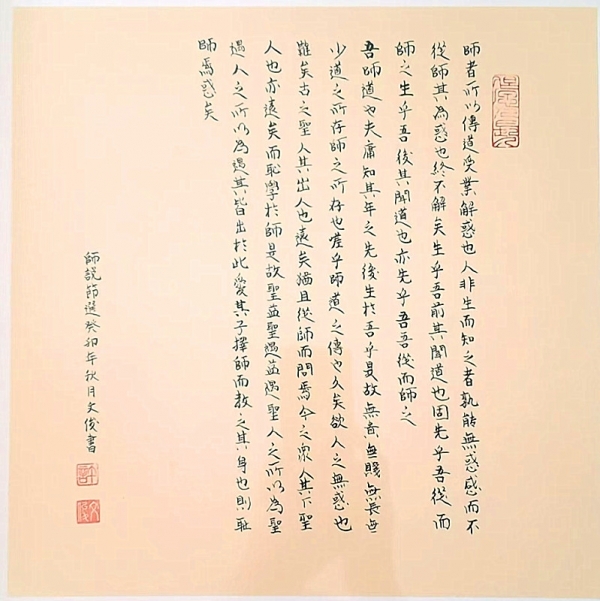 師者所以傳道受業解惑也人非生而知之者孰能無惑惑而不
從師其為惑也終不解矣生乎吾前其聞道也固先乎吾從而
師之生乎吾後其聞道也亦先乎吾吾從而師之
吾師道也夫庸知其年之先後生於吾乎是故無貴無賤無長無
少道之所存師之所存也嗟乎師道之傳也久矣欲人之無惑也
難矣古之聖人其出人也遠矣猶且從師而問焉今之眾人其下聖
人也亦遠矣而恥學於師是故聖益聖愚益愚聖人之所以為聖
愚人之所以為愚其皆出於此愛其子擇師而教之其身也則恥
師焉惑矣
師說節選癸卯年秋月文俊書
許
文俊